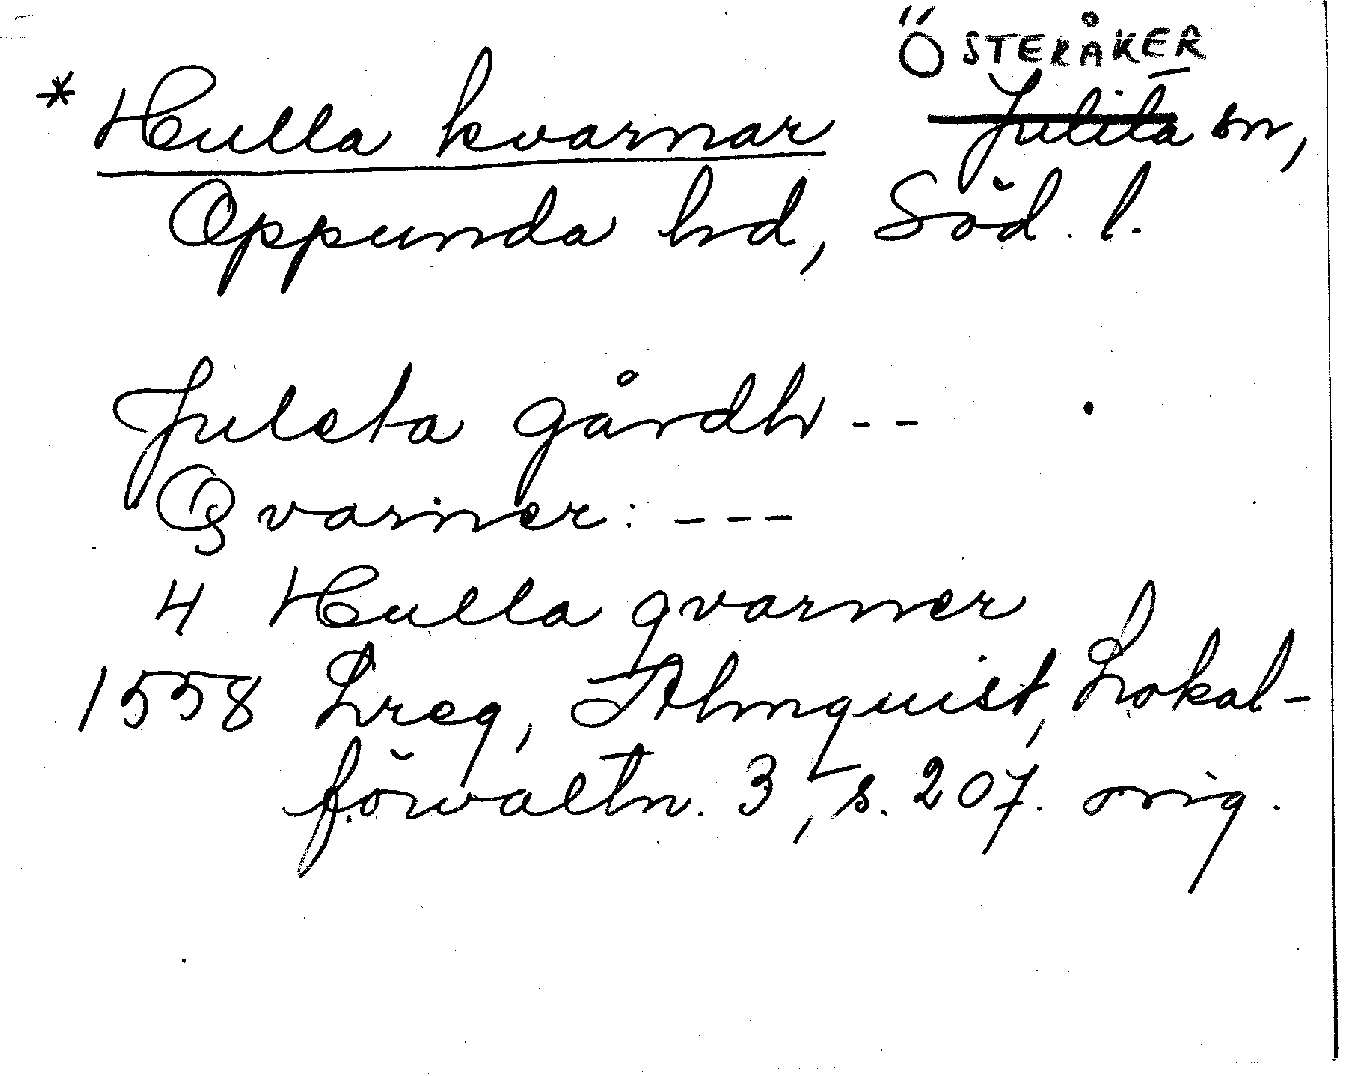 ÖSTERÅKER
* Hulla kvarnar Julita sn,
Oppunda hd, Söd. l.
Juleta gårdh --
Qvarner: ---
4 Hulla qvarner
1558 Lreg, Almquist, Lokal-
förvaltn. 3, s. 207. orig.